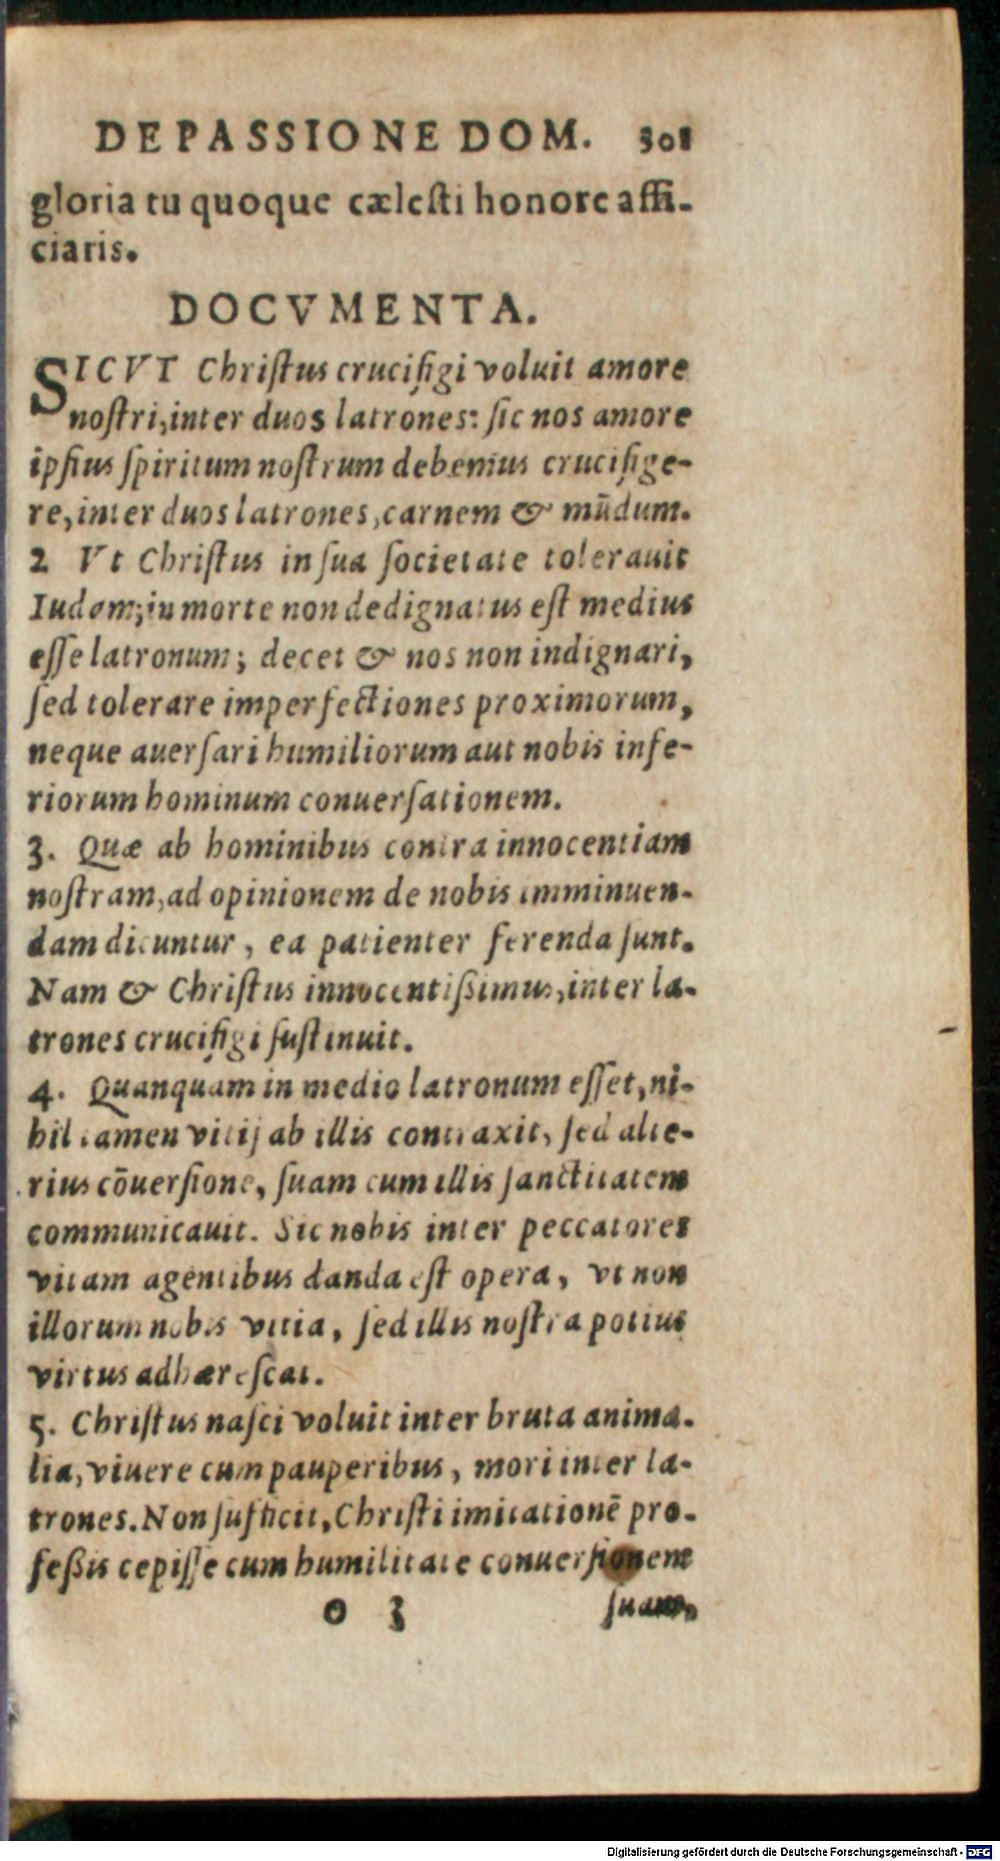 DE PASSIONE DOM. 301
gloria tu quoque cælesti honore affi-
ciaris.
DOCVMENTA.
SICVT Christus crucifigi voluit amore
nostri, inter duos latrones: sic nos amore
ipsius spiritum nostrum debemus crucifige-
re, inter duos latrones, carnem & mūdum.
2 Vt Christus in sua societate tolerauit
Iudam; in morte non dedignatus est medius
esse latronum; decet & nos non indignari,
sed tolerare imperfectiones proximorum,
neque auersari humiliorum aut nobis infe-
riorum hominum conuersationem.
3. Quæ ab hominibus contra innocentiam
nostram, ad opinionem de nobis imminuen-
dam dicuntur, ea patienter ferenda sunt.
Nam & Christus innocentissimus, inter la-
trones crucifigi sustinuit.
4. Quanquam in medio latronum esset, ni-
hil tamen vitij ab illis contraxit, sed alte-
rius cōuersione, suam cum illis sanctitatem
communicauit. Sic nobis inter peccatores
vitam agentibus danda est opera, vt non
illorum nobis vitia, sed illis nostra potius
virtus adhærescat.
5. Christus nasci voluit inter bruta anima-
lia, viuere cum pauperibus, mori inter la-
trones. Non sufficit, Christi imitationē pro-
fessis cepisse cum humilitate conuersionem
O 3 suam,
Digitalisierung gefördert durch die Deutsche Forschungsgemeinschaft - DFG